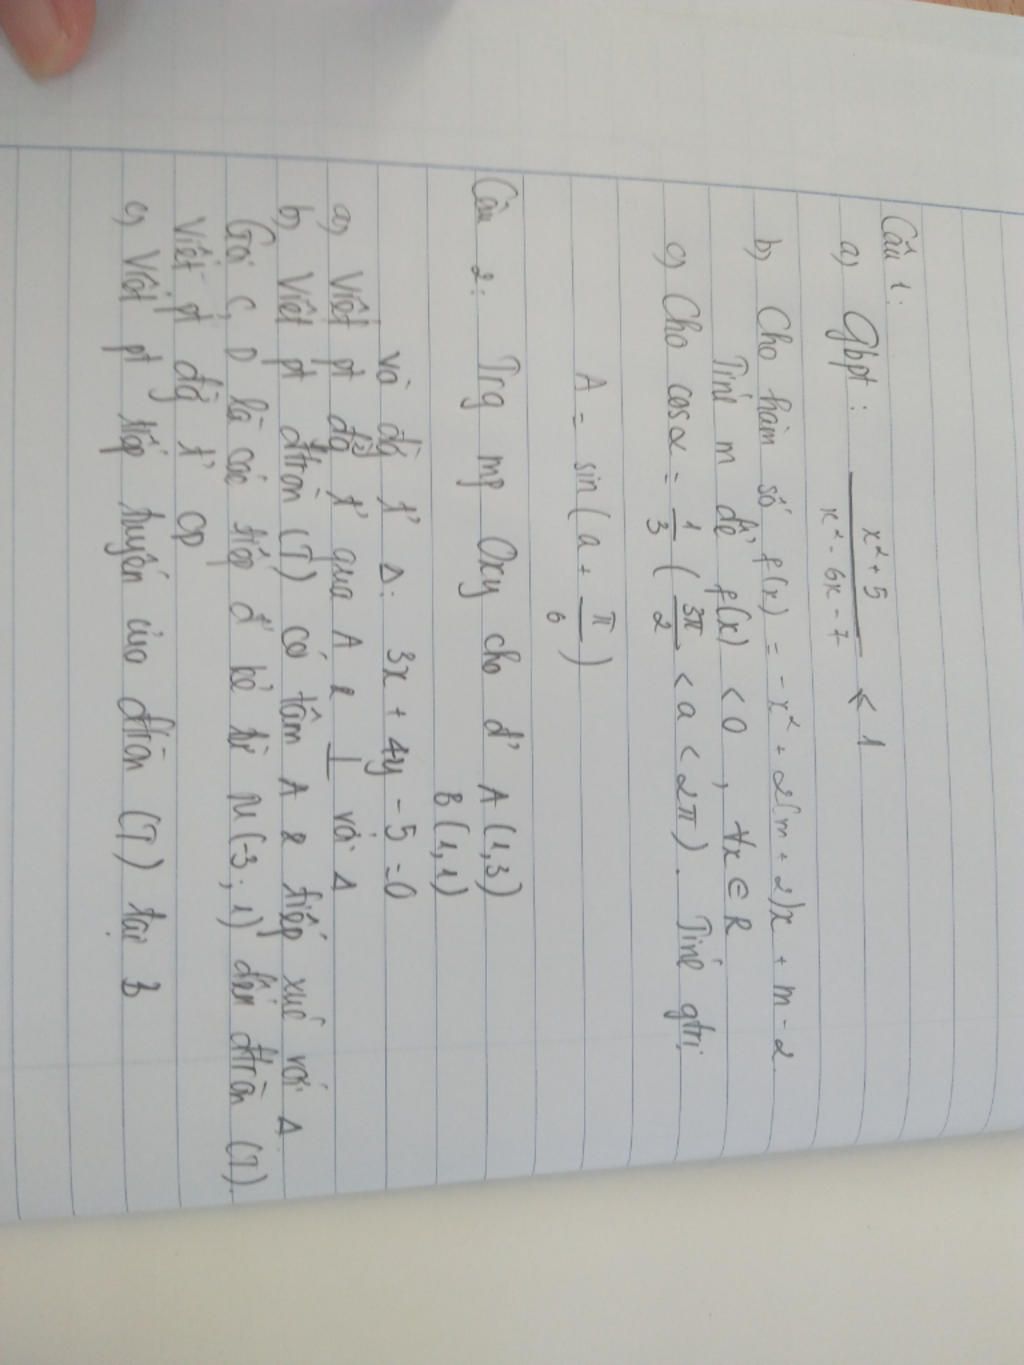 Câu 1:
a) Gbpt: \frac{x² + 5}{x² - 6x - 7} < 1
b) Cho hàm số f(x) = - x² + 2(m + 2)x + m - 2
Tìm m để f(x) < 0, ∀x ∈ R
c) Cho cos α = \frac{1}{3} (\frac{3π}{2} < a < 2π). Tính gtrị
A = sin(a + \frac{π}{6})
Câu 2: Trg mp Oxy cho đ' A(1,3)
B(1,1)
và đg t' Δ: 3x + 4y - 5 = 0
a) Viết pt đg t' qua A & ⊥ với Δ
b) Viết pt đtròn (T) có tâm A & tiếp xúc với Δ.
Gọi C, D là các tiếp đ' kẻ từ M(-3; 1) đến đtròn (T).
Viết pt đg t' CD
c) Viết pt tiếp tuyến của đtròn (T) tại B